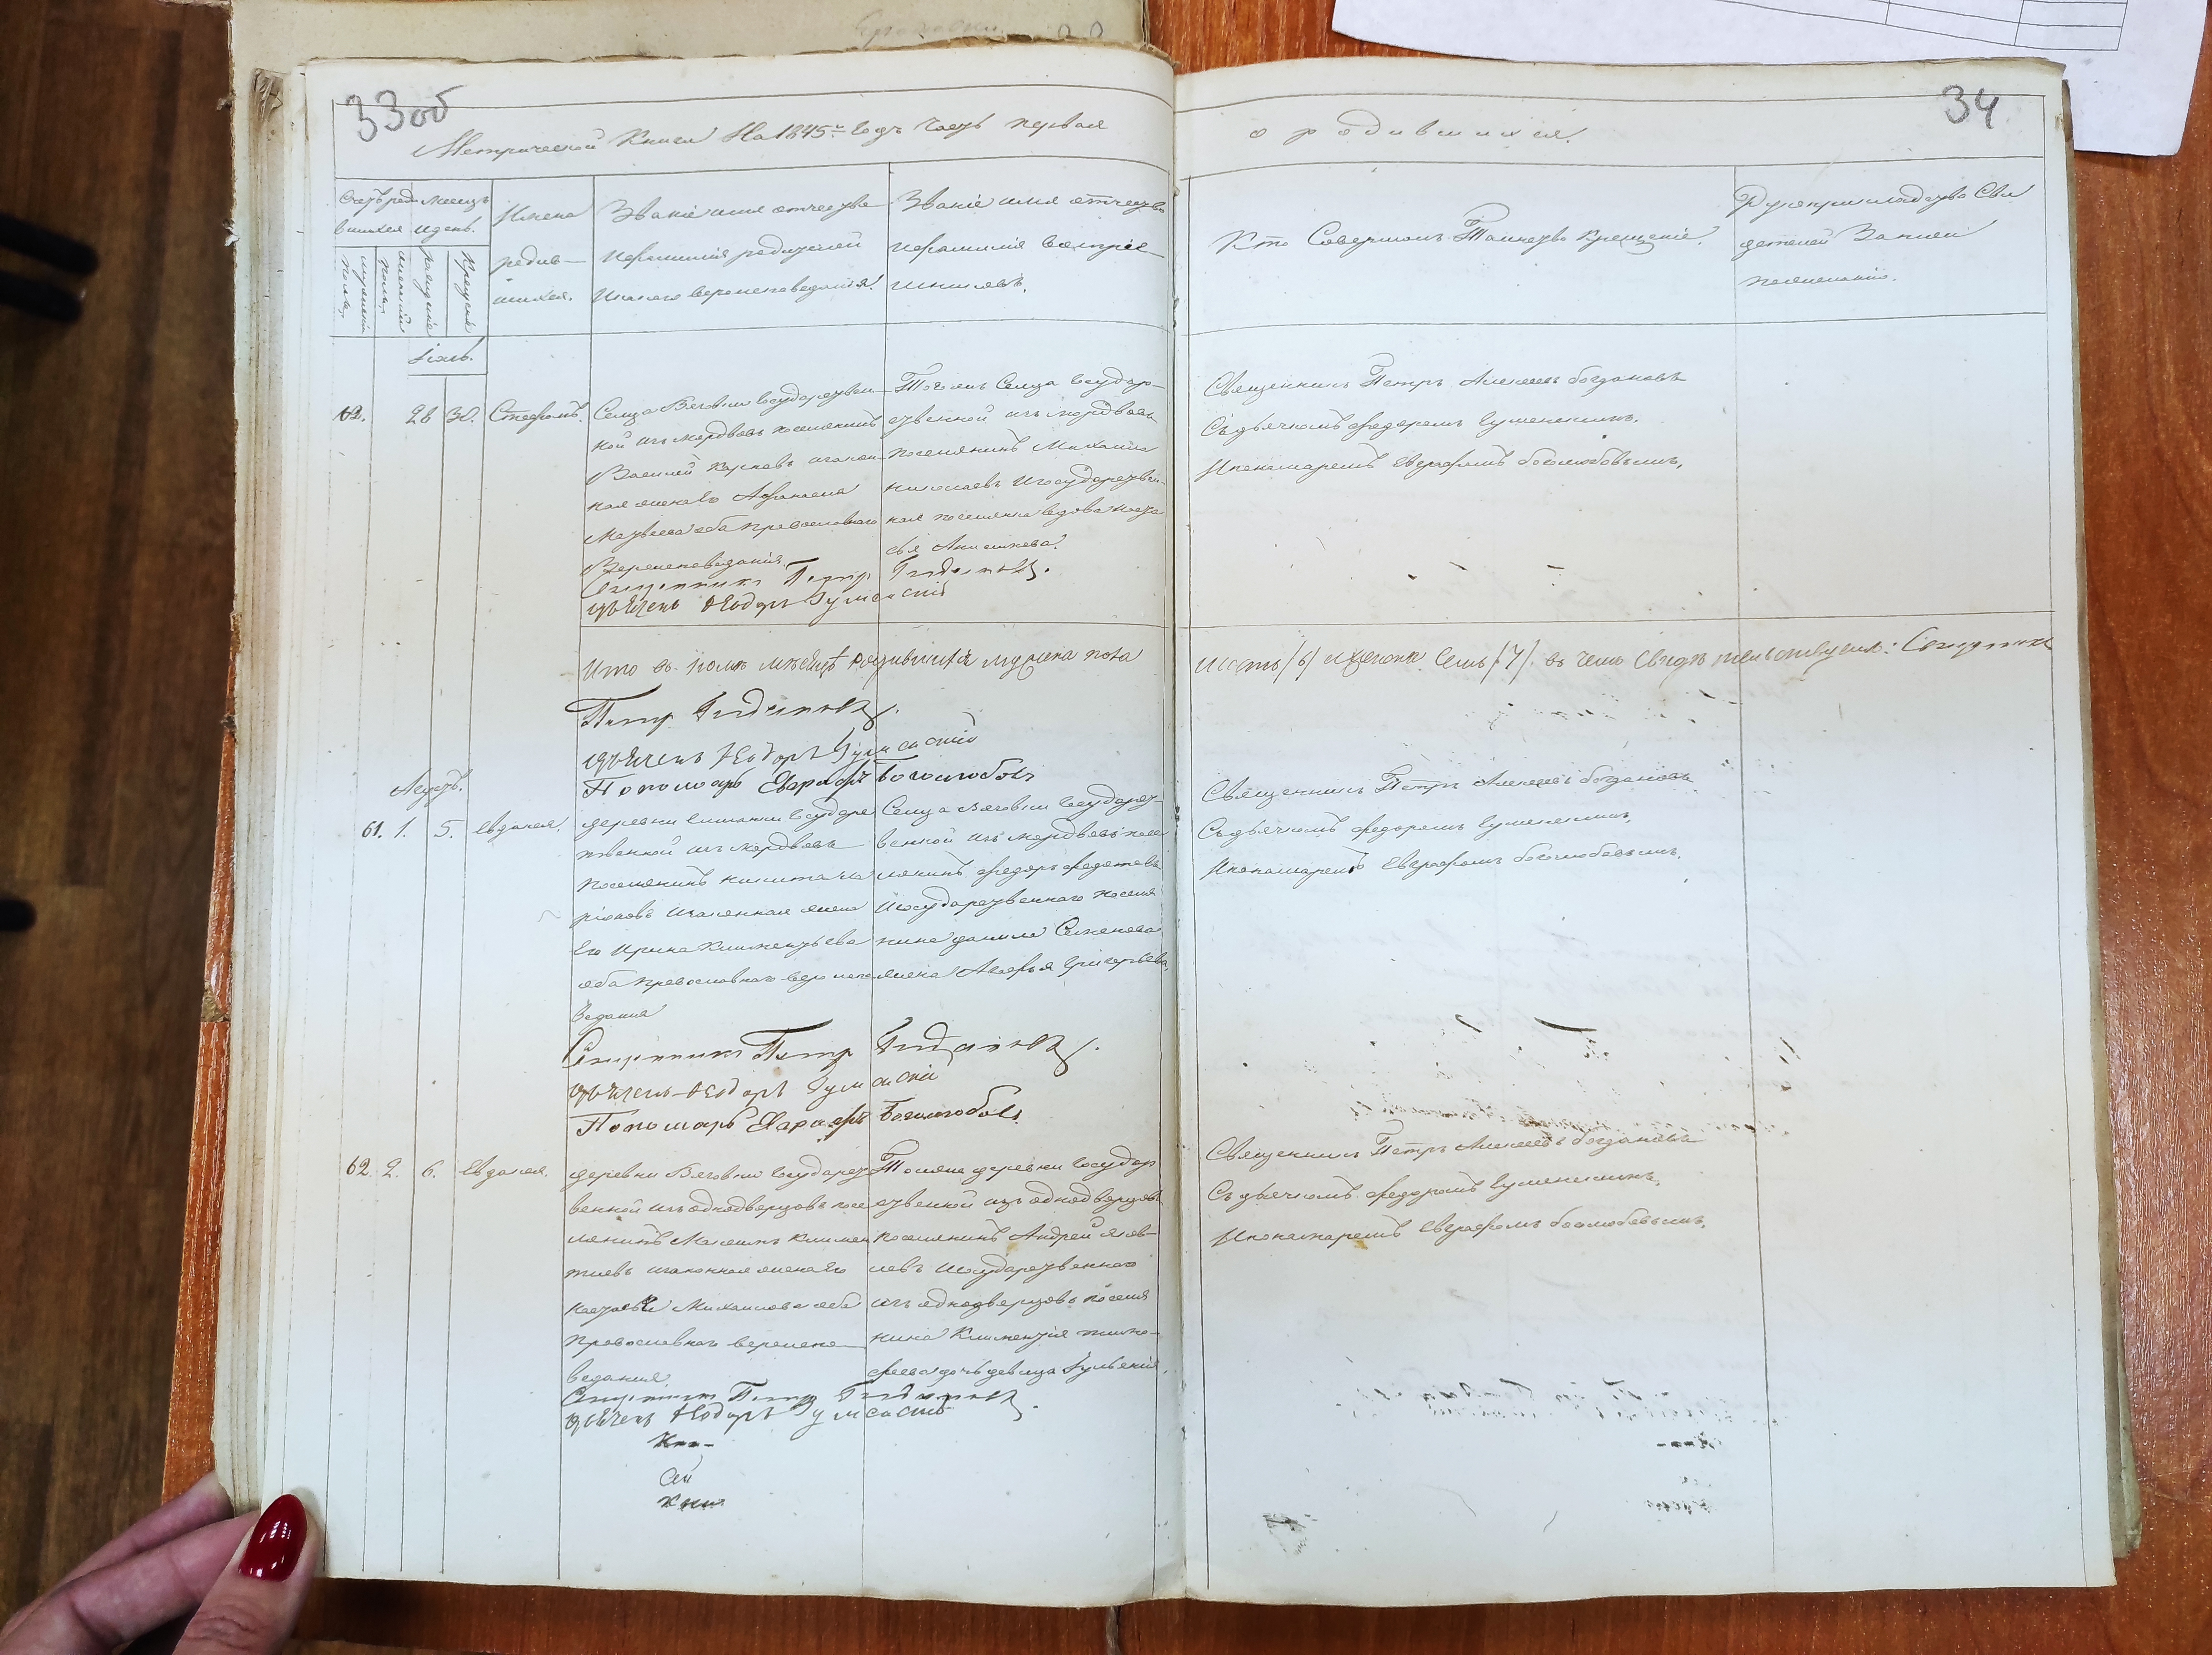 33об
34
Метрической Книги На 1845й Годъ Часть первая
о родившихся.
Счетъ роди
вшихся
Месяцъ
и день.
Имена
родив-
шихся.
Званіе имя отчество
и фамилія родителей
и какого вероисповеданія.
Званіе имя отчество
и фамилія воспріе-
мниковъ.
Кто Совершалъ Таинство Крещенія.
Рукоприкладство Сви
детелей Записи
по желанію.
мужеска
пола
женска
пола
рожденія
Крещенія
Іюль.
62. 28 30. Стефанъ.
Селца Вязовки Государствен-
ной изъ мордвовъ поселянинъ
Василей Карповъ и закон-
ная жена его Афанасия
Матвеева оба православнаго
Вероисповеданія
Тогожъ Селца Государ-
ственной изъ мордвовъ
поселянинъ Михаила
Николаевъ и Государствен-
ная поселянка вдова Наста
сья Анисимова.
Священникъ Петръ Алексеевъ богдановъ
Съ дьячкомъ федоромъ Гуменскимъ.
И пономаремъ Евграфомъ боголюбовымъ.
Священникъ Петр Богдановъ.
дьячекъ Ѳеодоръ Гуменскій
Итого в Іюлѣ мѣсяцѣ родившихся мужеска пола
шесть /6/ а женска Семь /7/. въ чемъ Свидѣтельствуемъ: Священникъ
Петр Богдановъ.
дьячекъ Ѳеодоръ Гуменскій
Пономарь Евграфъ Боголюбовъ
Августъ.
61. 1. 5. Евдокея.
деревни Елшанки Государс
твенной изъ мордвовъ
поселянинъ Никита Ла
ріоновъ и законная жена
Его Ирина Климентьева
оба православнаго вероиспо
веданія
Селца Вязовки Государст-
венной изъ мордвовъ посе
лянинъ федоръ федотовъ
и Государственнаго поселя
нина данила Семенова
жена Агафья Григорьева.
Священникъ Петръ Алексеевъ богдановъ
Съ дьячкомъ федоромъ Гуменскимъ.
И пономаремъ Евграфомъ боголюбовымъ.
Священникъ Петр Богдановъ.
дьячекъ Ѳеодоръ Гуменскій
Пономарь Евграфъ Боголюбовъ
62. 2. 6. Евдокея.
деревни Вязовки Государст
венной изъ однодворцовъ посе
лянинъ Максимъ Климен
тьевъ и законная жена Его
Настасья Михаилова оба
православнаго вероиспо
веданія
Тояже деревни Государ
ственной изъ однодворцовъ
поселянинъ Андрей Яков-
левъ и Государственнаго
изъ однодворцовъ поселя
нина Климентія тимо-
феева дочь девица Іульянія.
Священникъ Петръ Алексеевъ богдановъ
Съ дьячкомъ федоромъ Гуменскимъ.
И пономаремъ Евграфомъ боголюбовымъ.
Священникъ Петр Богдановъ.
дьячекъ Ѳеодоръ Гуменскій
Сей